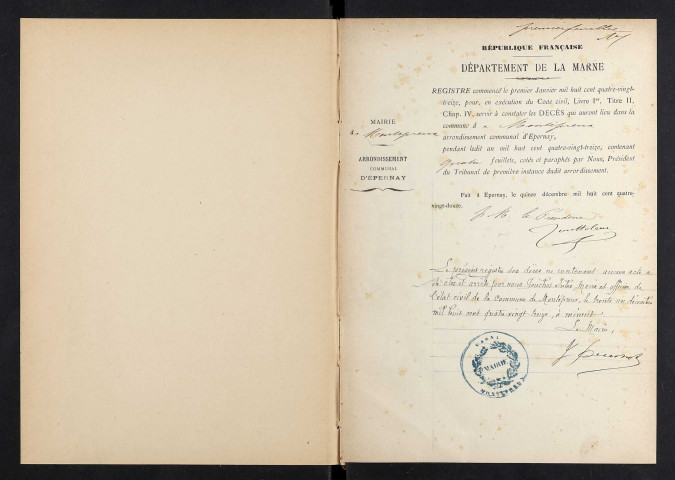 premier feuillet
RÉPUBLIQUE FRANÇAISE
DÉPARTEMENT DE LA MARNE
REGISTRE commencé le premier Janvier mil huit cent quatre-vingt-
treize, pour, en exécution du Code civil, Livre Ier, Titre II,
Chap. IV, servir à constater les DÉCÈS qui auront lieu dans la
commune d e Montépreux
arrondissement communal d'Epernay,
pendant ledit an mil huit cent quatre-vingt-treize, contenant
quatre feuillets, cotés et paraphés par Nous, Président
du Tribunal de première instance dudit arrondissement.
Fait à Epernay, le quinze décembre mil huit cent quatre-
vingt-douze.
MAIRIE
de Montépreux
ARRONDISSEMENT
COMMUNAL
D'ÉPERNAY
Le présent registre des décès ne contenant aucun acte a
été clos et arrêté par nous Jules Maire et officier de
l'état civil de la commune de Montépreux, le trente un décembre
mil huit cent quatre vingt treize, à minuit.
Le Maire,
MAIRIE
MONTÉPREUX